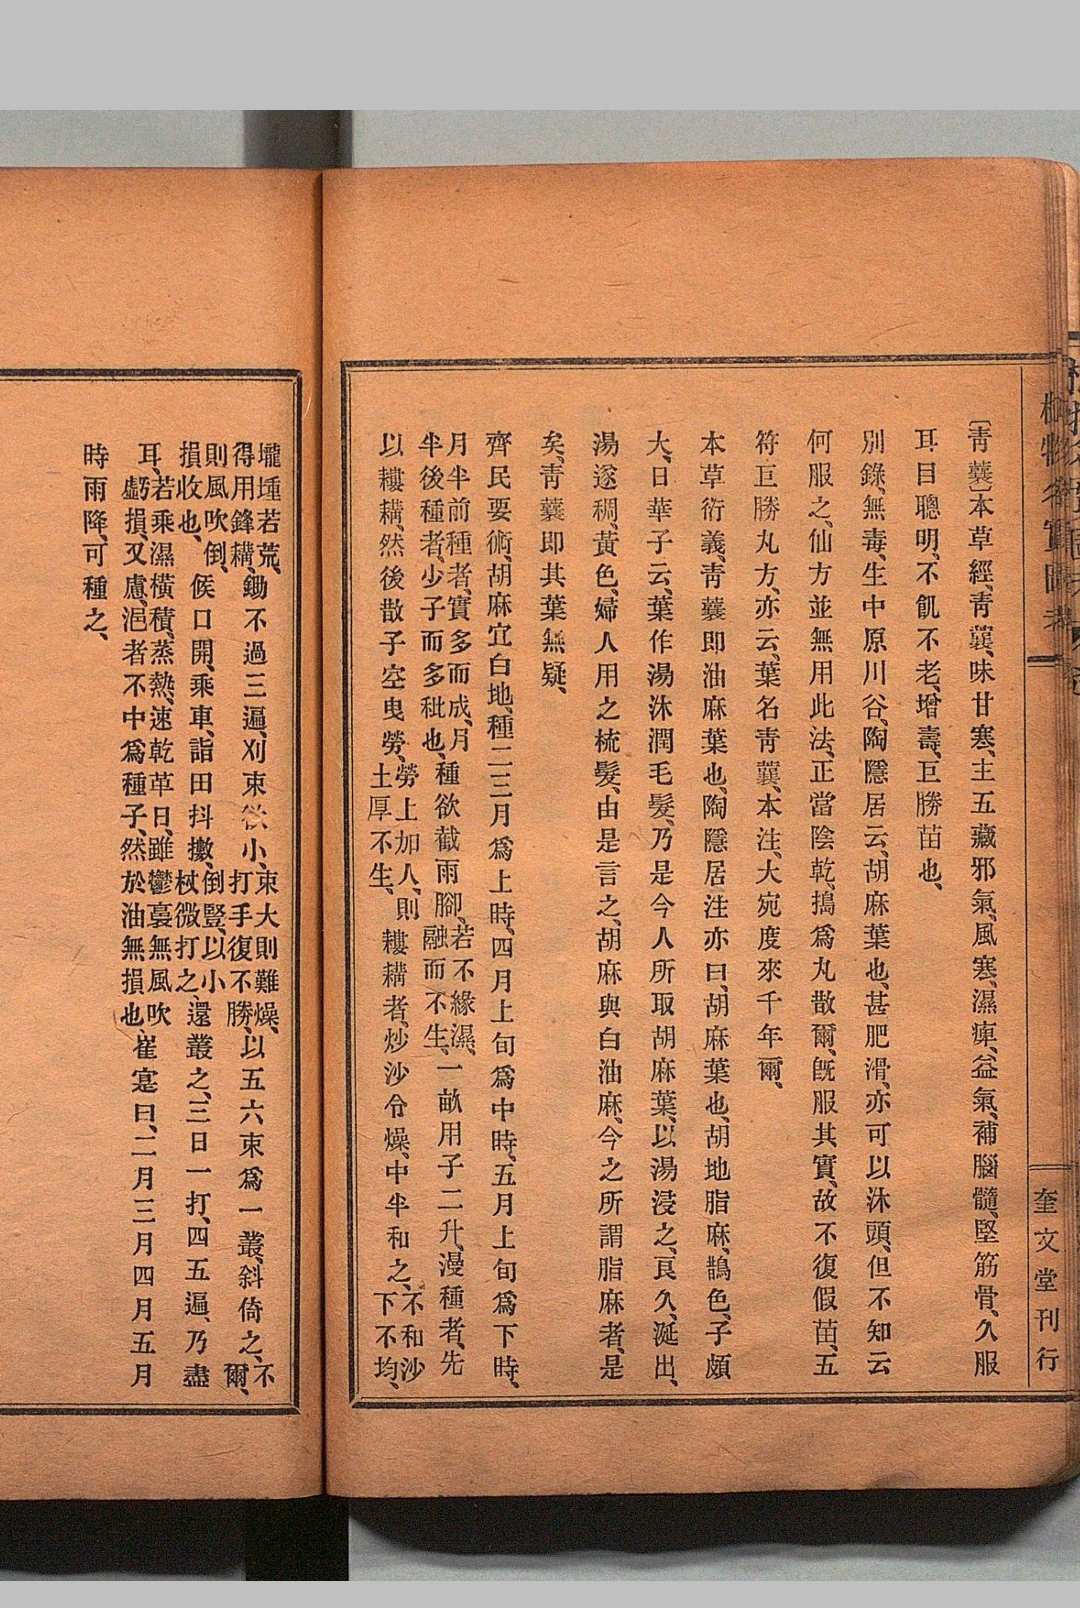 植物名實圖考
奎文堂刊行
〔靑蘘〕本草經、靑蘘、味甘寒、主五藏邪氣、風寒、濕痺、益氣、補腦髓、堅筋骨、久服
耳目聰明、不飢不老、增壽、巨勝苗也、
別錄、無毒、生中原川谷、陶隱居云、胡麻葉也、甚肥滑、亦可以沐頭、但不知云
何服之、仙方並無用此法、正當陰乾、搗爲丸散爾、旣服其實、故不復假苗、五
符巨勝丸方、亦云、葉名靑蘘、本注、大宛度來千年爾、
本草衍義、靑蘘卽油麻葉也、陶隱居注亦曰、胡麻葉也、胡地脂麻、鵲色、子頗
大、日華子云、葉作湯沐潤毛髮、乃是今人所取胡麻葉、以湯浸之、良久、涎出、
湯遂稠、黃色、婦人用之梳髮、由是言之、胡麻與白油麻、今之所謂脂麻者、是
矣、靑蘘卽其葉無疑、
齊民要術、胡麻宜白地、種二三月爲上時、四月上旬爲中時、五月上旬爲下時、
月半前種者、實多而成、月半後種者、少子而多秕也、種欲截雨腳、若不緣濕、融而不生、一畝用子二升、漫種者、先
以耬耩、然後散子空曳勞、勞上加人、則土厚不生、耬耩者、炒沙令燥、中半和之、不和沙下不均、
壠堹若荒、得用鋒耩、鋤不過三遍、刈束欲小、束大則難燥、打手復不勝、以五六束爲一叢、斜倚之、不爾、
則風吹倒、損收也、候口開、乘車、詣田抖擻、倒豎、以小杖微打之、還叢之、三日一打、四五遍、乃盡
耳、若乘濕橫積、蒸熱、速乾革日、雖鬱裛無風吹虧損、又慮、浥者不中爲種子、然於油無損也、崔寔曰、二月三月四月五月
時雨降、可種之、